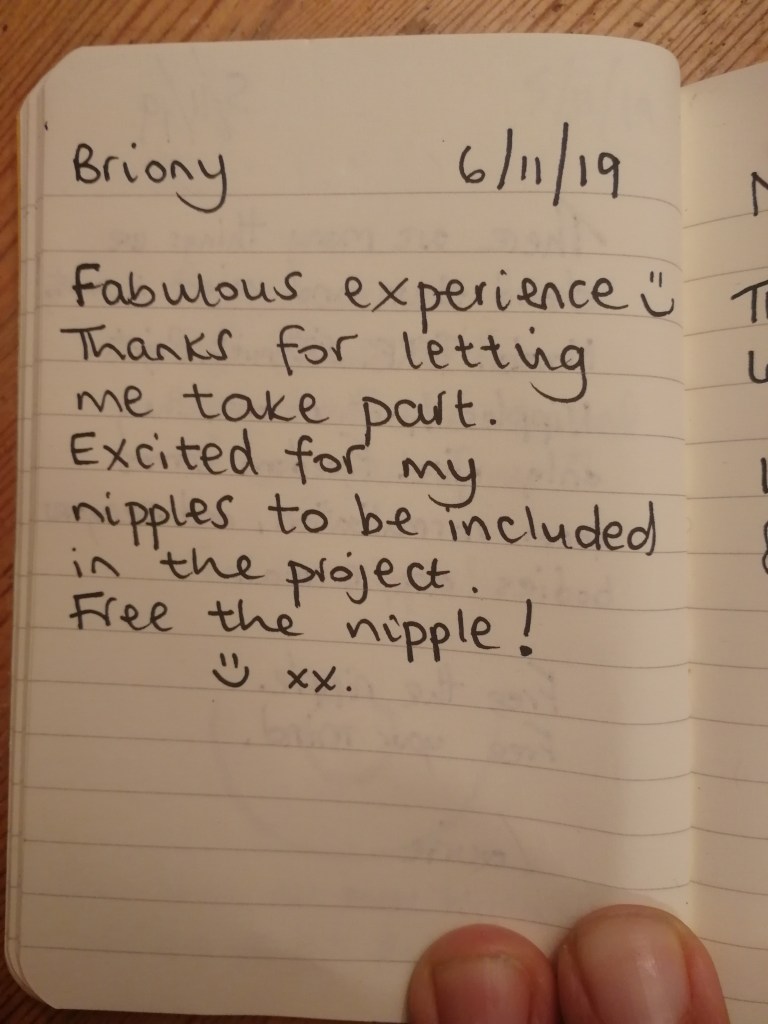 Briony 6/11/19
Fabulous experience :)
Thanks for letting
me take part.
Excited for my
nipples to be included
in the project.
Free the nipple!
:) xx.